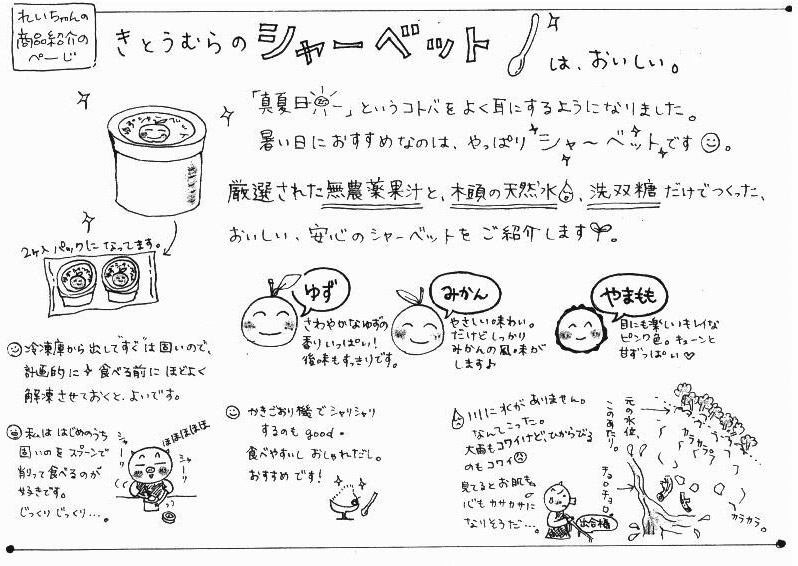 れいちゃんの
商品紹介の
ぺーじ
きとうむらの シャーベット は、おいしい。
「真夏日」というコトバをよく耳にするようになりました。
暑い日におすすめなのは、やっぱりシャ〜ベットです。
厳選された無農薬果汁と、木頭の天然水、洗双糖だけでつくった、
おいしい、安心のシャーベットをご紹介します。
ゆずシャーベット
2ヶ入パックになってます。
ゆず
さわやかなゆずの
香りいっぱい!
後味もすっきりです。
みかん
やさしい味わい。
だけどしっかり
みかんの風味が
します♪
やまもも
目にも楽しいキレイな
ピンク色。キューンと
甘ずっぱい♡
冷凍庫から出してすぐは固いので、
計画的に食べる前にほどよく
解凍させておくと、よいです。
私ははじめのうち
固いのをスプーンで
削って食べるのが
好きです。
じっくりじっくり…。
シャーリ
シャーリ
ほほほほほ
かきごおり機でシャリシャリ
するのもgood。
食べやすいしおしゃれだし。
おすすめです!
川に水がありません。
なんてこった。
大雨もコワイけど、ひからびる
のもコワイ
見てるとお肌も
心もカサカサに
なりそうだ…。
出合橋
元の水位、
このあたり。
チョロチョロ。
カラカラ
カラカラ。